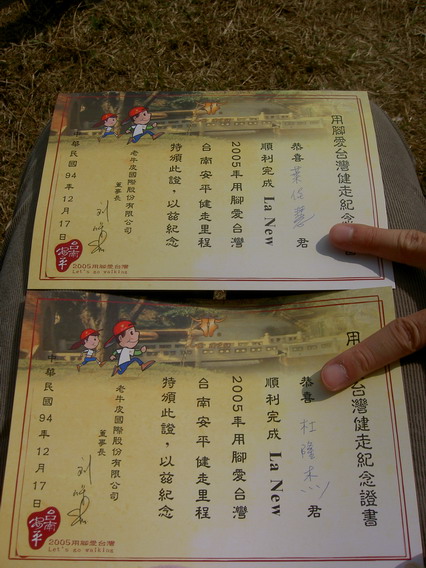 用腳愛台灣健走紀念書
恭喜 葉佐慧 君
順利完成 La New
2005年用腳愛台灣
台南安平健走里程
特頒此證，以茲紀念
老牛皮國際股份有限公司
董事長
中華民國94年12月17日
台南
安平
2005用腳愛台灣
Let's go walking
用台灣健走紀念證書
恭喜 杜隆杰 君
順利完成 La New
2005年用腳愛台灣
台南安平健走里程
特頒此證，以茲紀念
老牛皮國際股份有限公司
董事長
中華民國94年12月17日
台南
安平
2005用腳愛台灣
Let's go walking